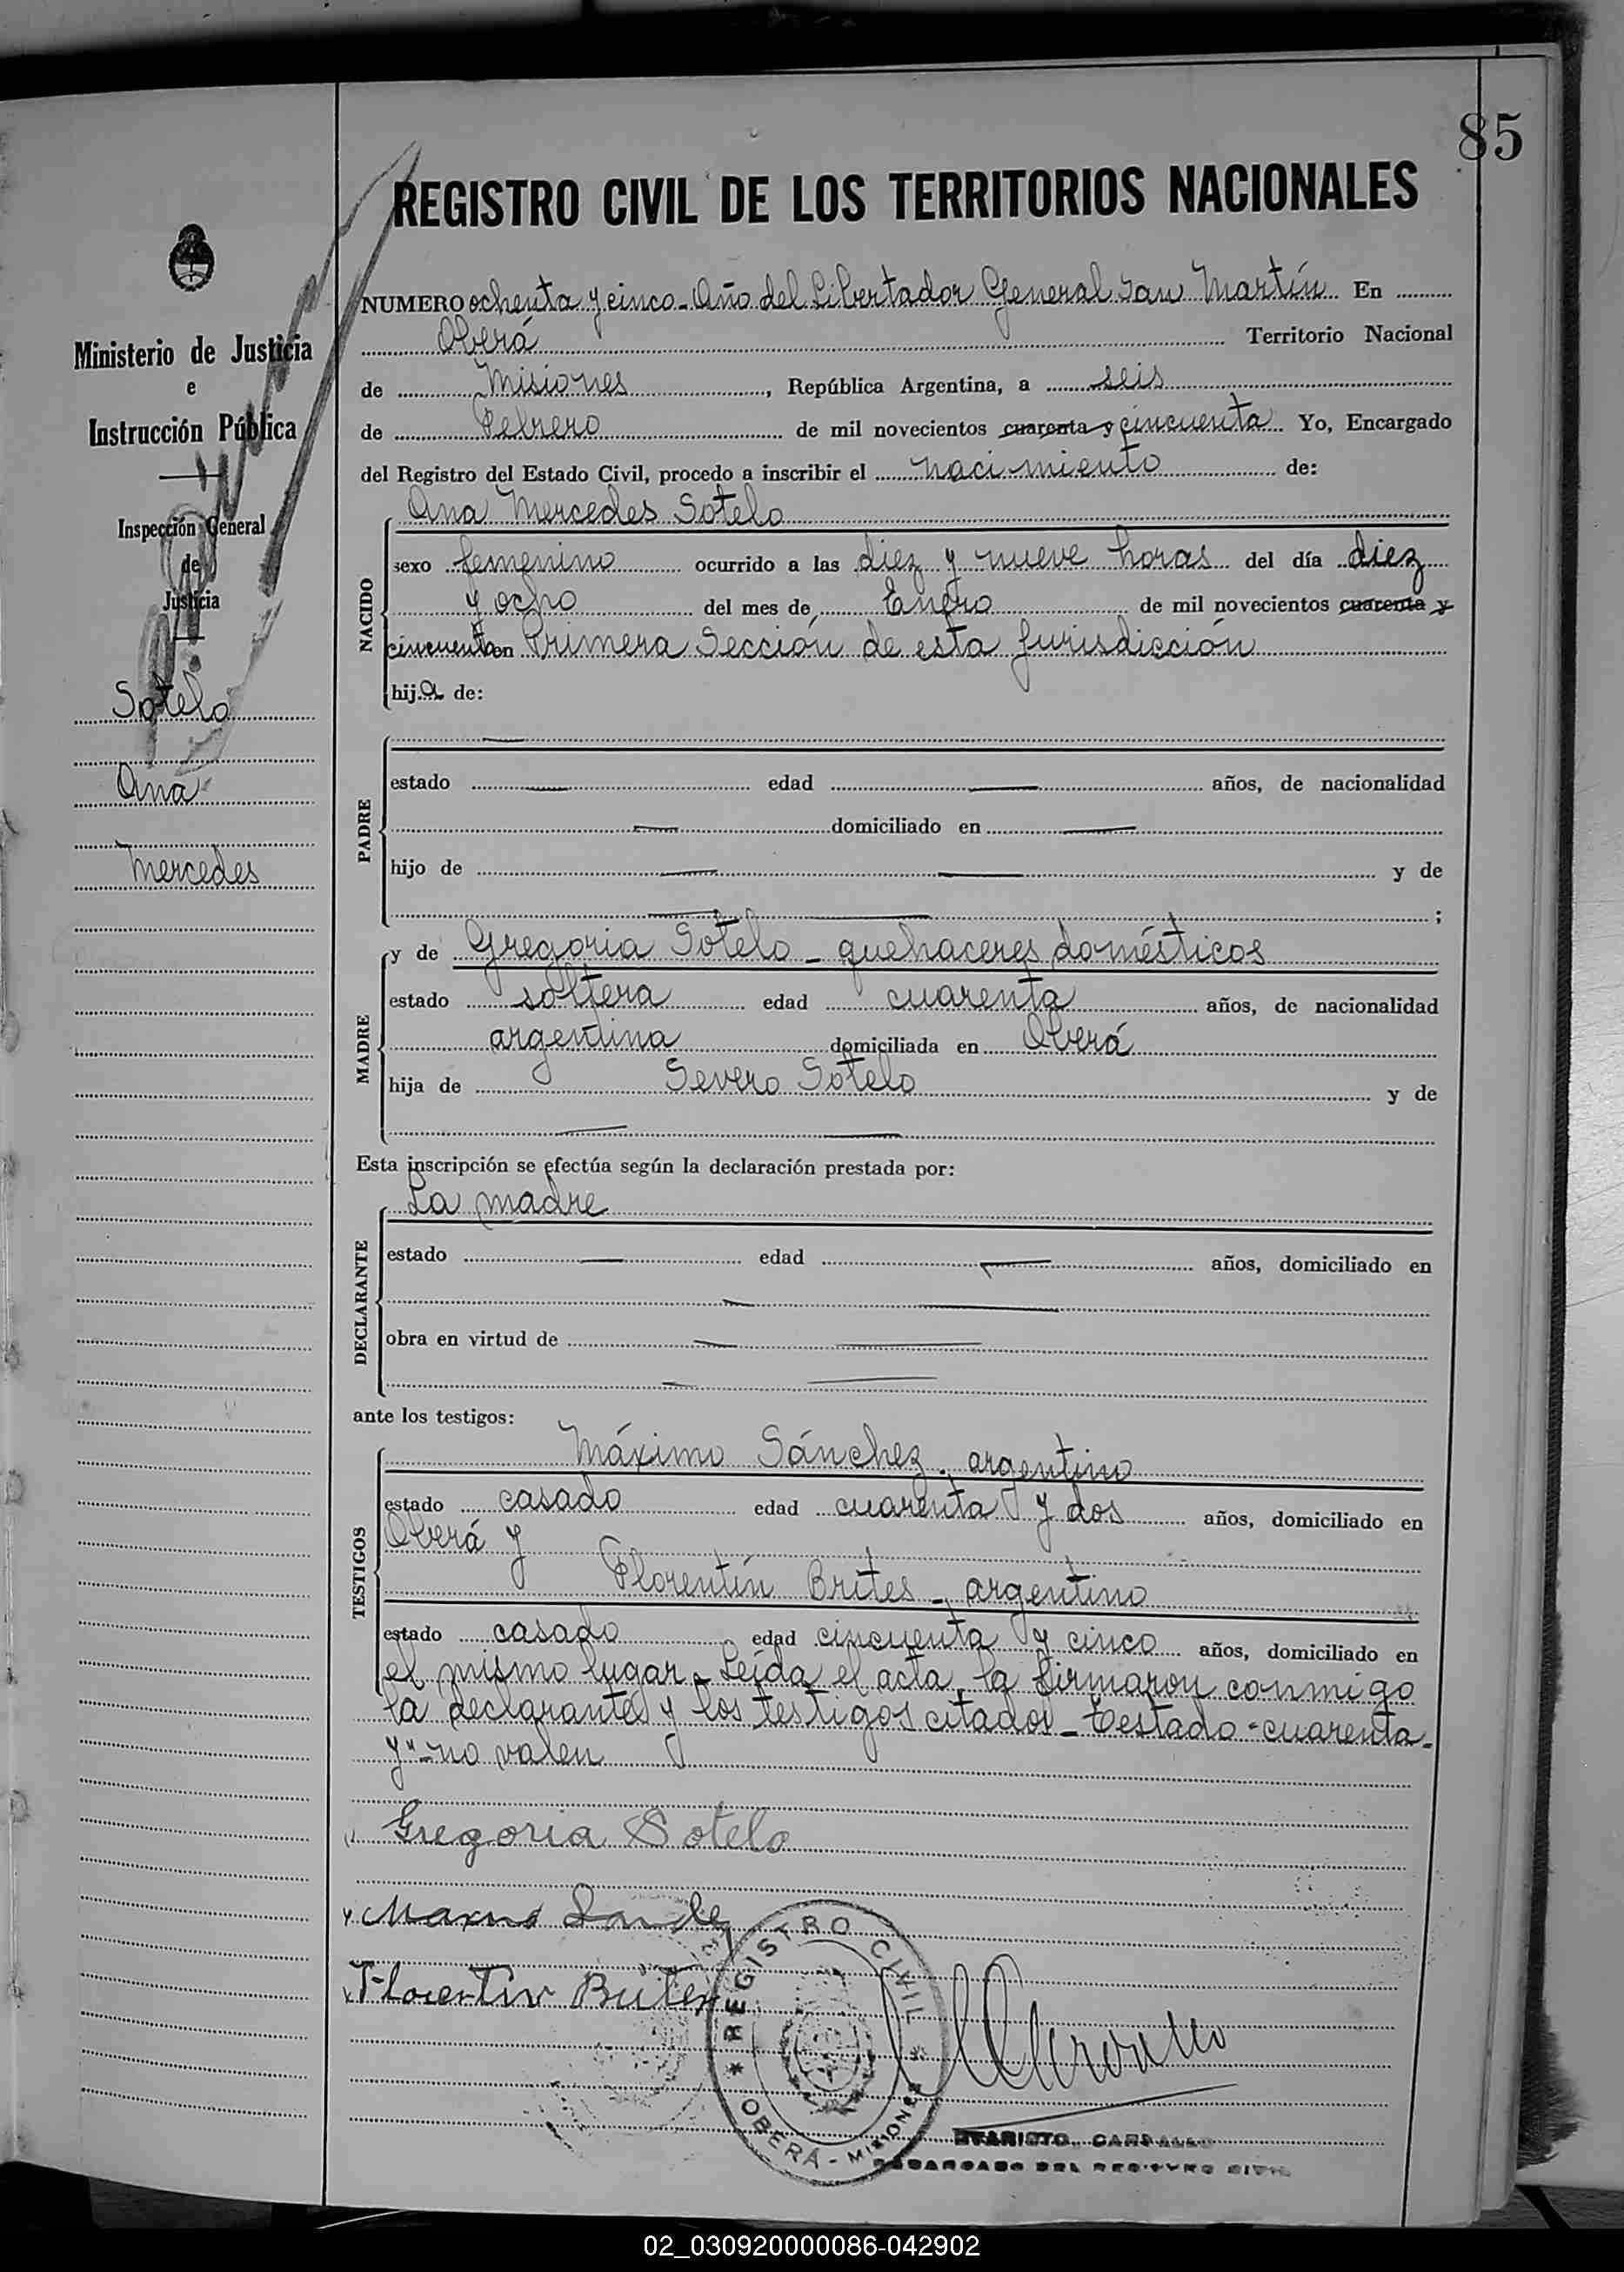 85
REGISTRO CIVIL DE LOS TERRITORIOS NACIONALES
Ministerio de Justicia
e
Instrucción Pública
Inspección General
de
Justicia
Sotelo
Ana
Mercedes
NUMERO ochenta y cinco - Año del Libertador General San Martín En
Oberá Territorio Nacional
de Misiones, República Argentina, a seis
de Febrero de mil novecientos cuarenta y cincuenta Yo, Encargado
del Registro del Estado Civil, procedo a inscribir el nacimiento de:
NACIDO
Ana Mercedes Sotelo
sexo femenino ocurrido a las diez y nueve horas del día diez
y ocho del mes de Enero de mil novecientos cuarenta y
cincuenta en Primera Sección de esta jurisdicción
hija de:
PADRE
estado edad años, de nacionalidad
domiciliado en
hijo de y de
;
MADRE
y de Gregoria Sotelo - quehaceres domésticos
estado soltera edad cuarenta años, de nacionalidad
argentina domiciliada en Oberá
hija de Severo Sotelo y de
Esta inscripción se efectúa según la declaración prestada por:
DECLARANTE
La madre
estado edad años, domiciliado en
obra en virtud de
ante los testigos:
TESTIGOS
Máximo Sánchez - argentino
estado casado edad cuarenta y dos años, domiciliado en
Oberá y
Florentín Brites - argentino
estado casado edad cincuenta y cinco años, domiciliado en
el mismo lugar - Leída el acta, la firmaron conmigo
la declarante y los testigos citados - Testado - cuarenta -
y" - no valen
Gregoria Sotelo
Florentin Brites
REGISTRO CIVIL
OBERÁ - MISIONES
ENCARGADO DEL REGISTRO CIVIL
02_030920000086-042902